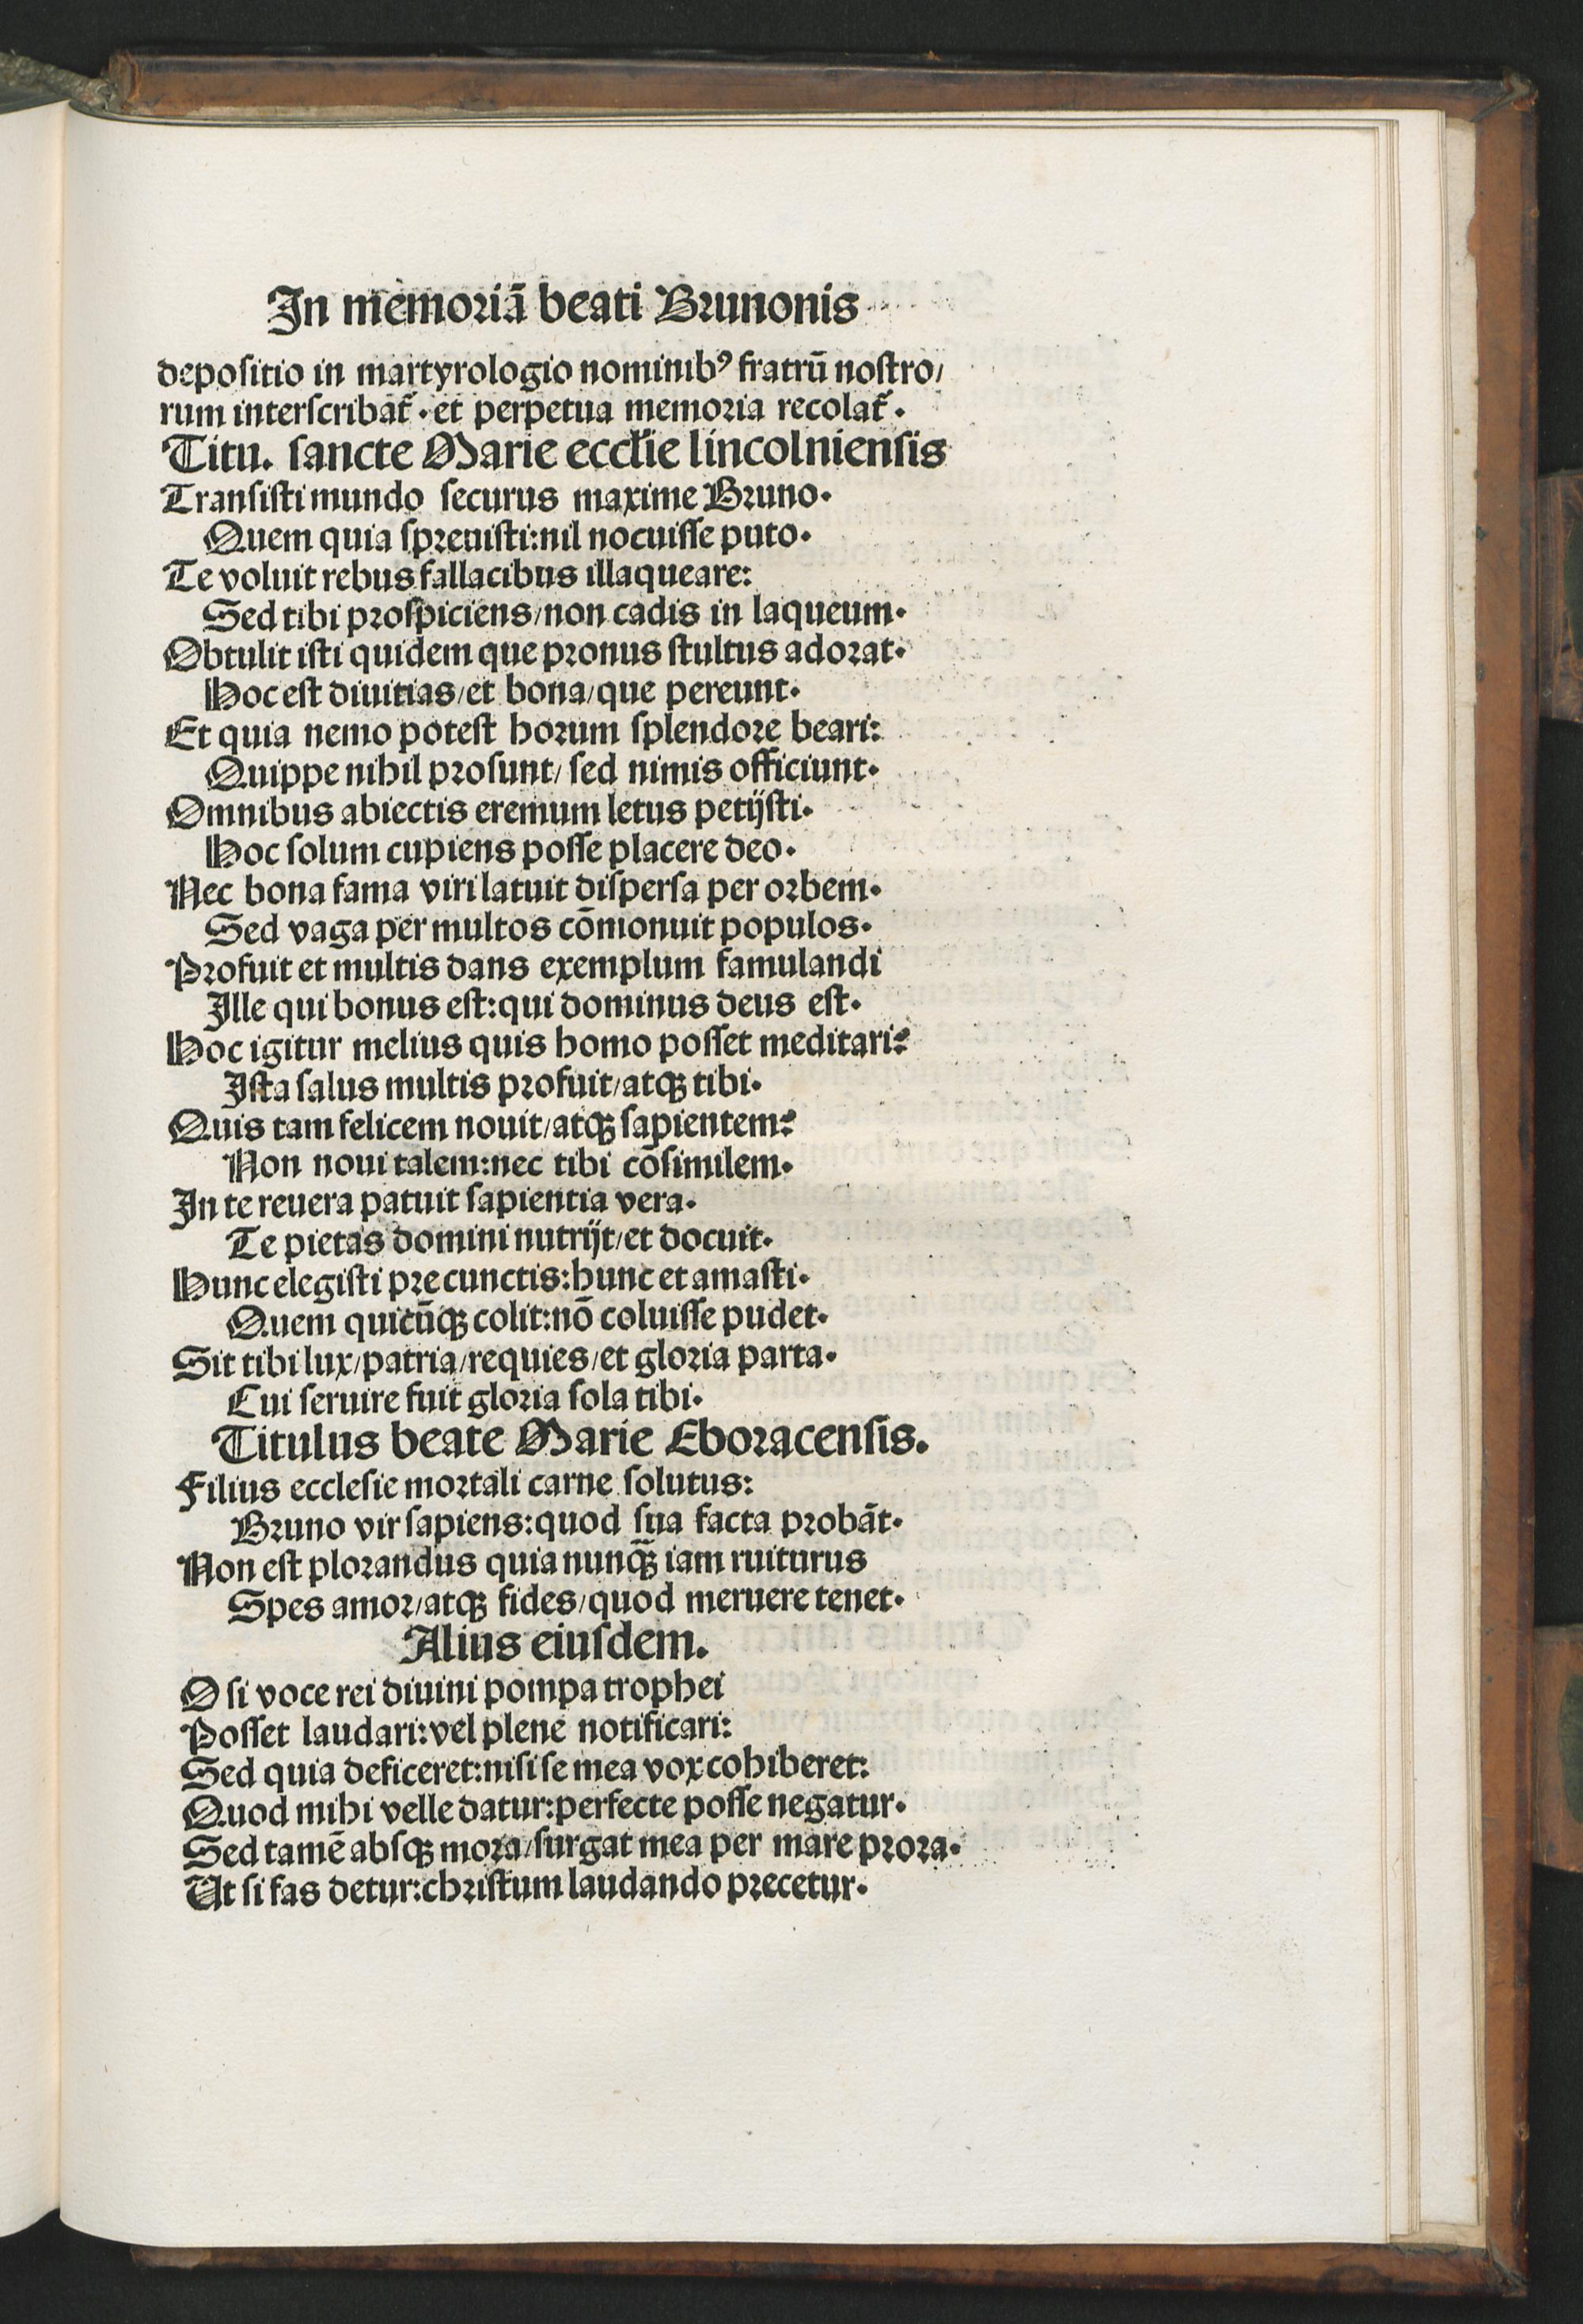 In memoriā beati Brunonis
depositio in martyrologio nominibꝰ fratrū nostro/
rum interscribat̄. et perpetua memoria recolat̄.
Titu. sancte Marie eccl̄ie lincolniensis
Transisti mundo securus maxime Bruno.
Quem quia spreuisti:nil nocuisse puto.
Te voluit rebus fallacibus illaqueare:
Sed tibi prospiciens/non cadis in laqueum.
Obtulit isti quidem que pronus stultus adorat.
Hoc est diuitias/et bona/que pereunt.
Et quia nemo potest horum splendore beari:
Quippe nihil prosunt/sed nimis officiunt.
Omnibus abiectis eremum letus petijsti.
Hoc solum cupiens posse placere deo.
Nec bona fama viri latuit dispersa per orbem.
Sed vaga per multos cōmonuit populos.
Profuit et multis dans exemplum famulandi
Ille qui bonus est:qui dominus deus est.
Hoc igitur melius quis homo posset meditari?
Ista salus multis profuit/atqꝫ tibi.
Quis tam felicem nouit/atqꝫ sapientem?
Non noui talem:nec tibi cōsimilem.
In te reuera patuit sapientia vera.
Te pietas domini nutrijt/et docuit.
Hunc elegisti pre cunctis:hunc et amasti.
Quem quicūqꝫ colit:nō coluisse pudet.
Sit tibi lux/patria/requies/et gloria parta.
Cui seruire fuit gloria sola tibi.
Titulus beate Marie Eboracensis.
Filius ecclesie mortali carne solutus:
Bruno vir sapiens:quod sua facta probāt.
Non est plorandus quia nunq̄ꝫ iam ruiturus
Spes amor/atqꝫ fides/quod meruere tenet.
Alius eiusdem.
O si voce rei diuini pompa trophei
Posset laudari:vel plene notificari:
Sed quia deficeret:nisi se mea vox cohiberet:
Quod mihi velle datur:perfecte posse negatur.
Sed tamē absqꝫ mora/surgat mea per mare prora.
Ut si fas detur:christum laudando precetur.